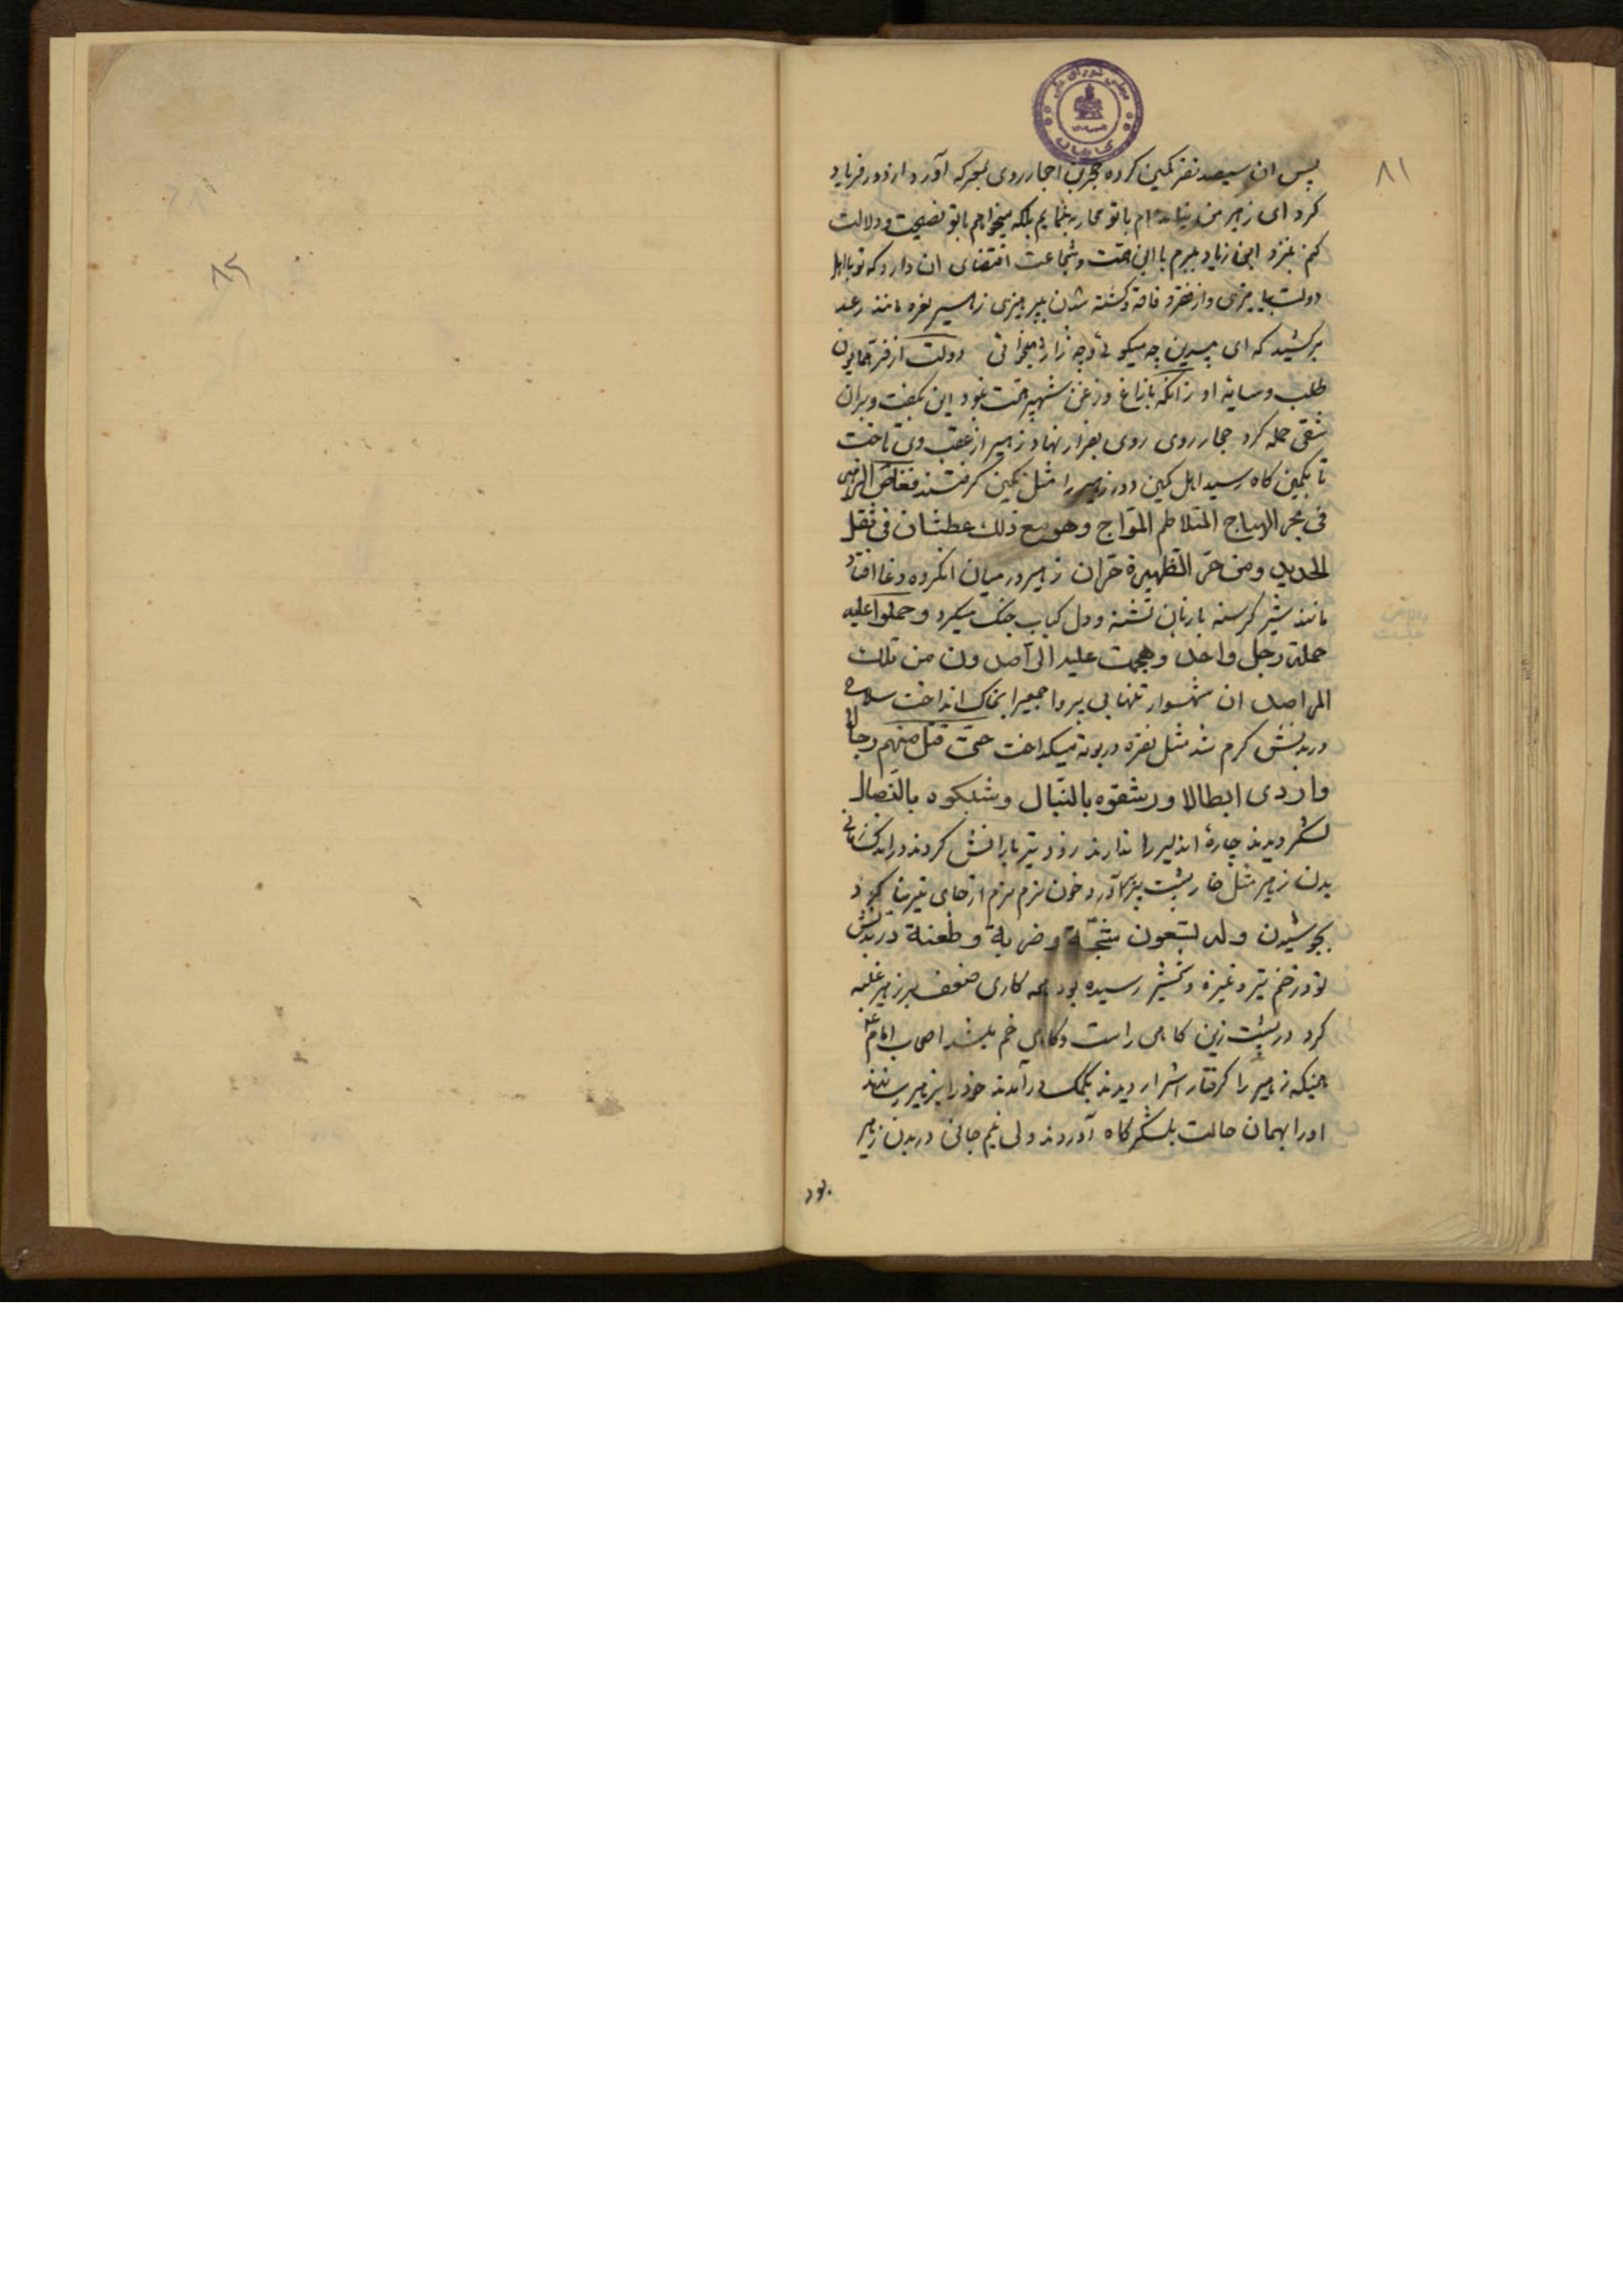 ۸۱
پس ان سیصد نفر کمین کرده حجربن احجار روی بمعرکه آورد و از دور فریاد
کرد ای زهیر من نیامده ام با تو محاربه نمایم بلکه میخواهم با تو نصیحت و دلالت
کنم بنزد ابن زیاد ببرم با این همت و شجاعت اقتضای ان دارد که تو با اهل
دولت بیامیزی و از فقر و فاقه و کشته شدن بپرهیزی زهیر نعره مانند رعد
برکشید که ای بیدین چه میکوئی و چه ژاژ میخوائی دولت از فر همایون
طلب و سایه او زانکه با زاغ و زغن شهپر همت نبود این بکفت و بران
شقی حمله کرد حجار روی روی بفرار نهاد زهیر از عقب وی تاخت
تا بکمین کاه رسید اهل کمین دور زهیر را مثل نکین کرفتند فغاص الزهیر
فی بحر الهیاج المتلاطم المواج وهو مع ذلك عطشان فی ثقل
الحدید ومن حر الظهیرة حران زهیر در میان انکروه دغا افتاد
مانند شیر کرسنه با زبان تشنه و دل کباب جنک میکرد وحملوا علیه
حملة رجل واحد وهجمت علیه الی آصدون من تلك
المراصد ان شهسوار تنها بی پروا جمعیرا بخاک انداخت سلاح
در بدنش کرم شد مثل نقره در بوته میکداخت حتی قتل منهم رجالا
واردی ابطالا ورشقوه بالنبال وشبکوه بالنصال
لشکر دیدند چارهٔ اندلیر را ندارند زود تیر بارانش کردند در اندک زمانی
بدن زهیر مثل خار پشت پر برآورد خون نرم نرم از جای تیرها کرد
بجوشیدن وله تسعون شجة وضربة وطعنة در بدنش
نود زخم تیر و نیزه و شمشیر رسیده بود همه کاری ضعف بر زهیر غلبه
کرد در پشت زین کاهی راست و کاهی خم میشد اصحاب امام ع
همینکه زهیر را کرفتار اشرار دیدند بکمک درآمدند خود را بزهیر رسانیدند
اورا بهمان حالت بلشکرکاه آوردند ولی نیم جانی در بدن زهیر
بود